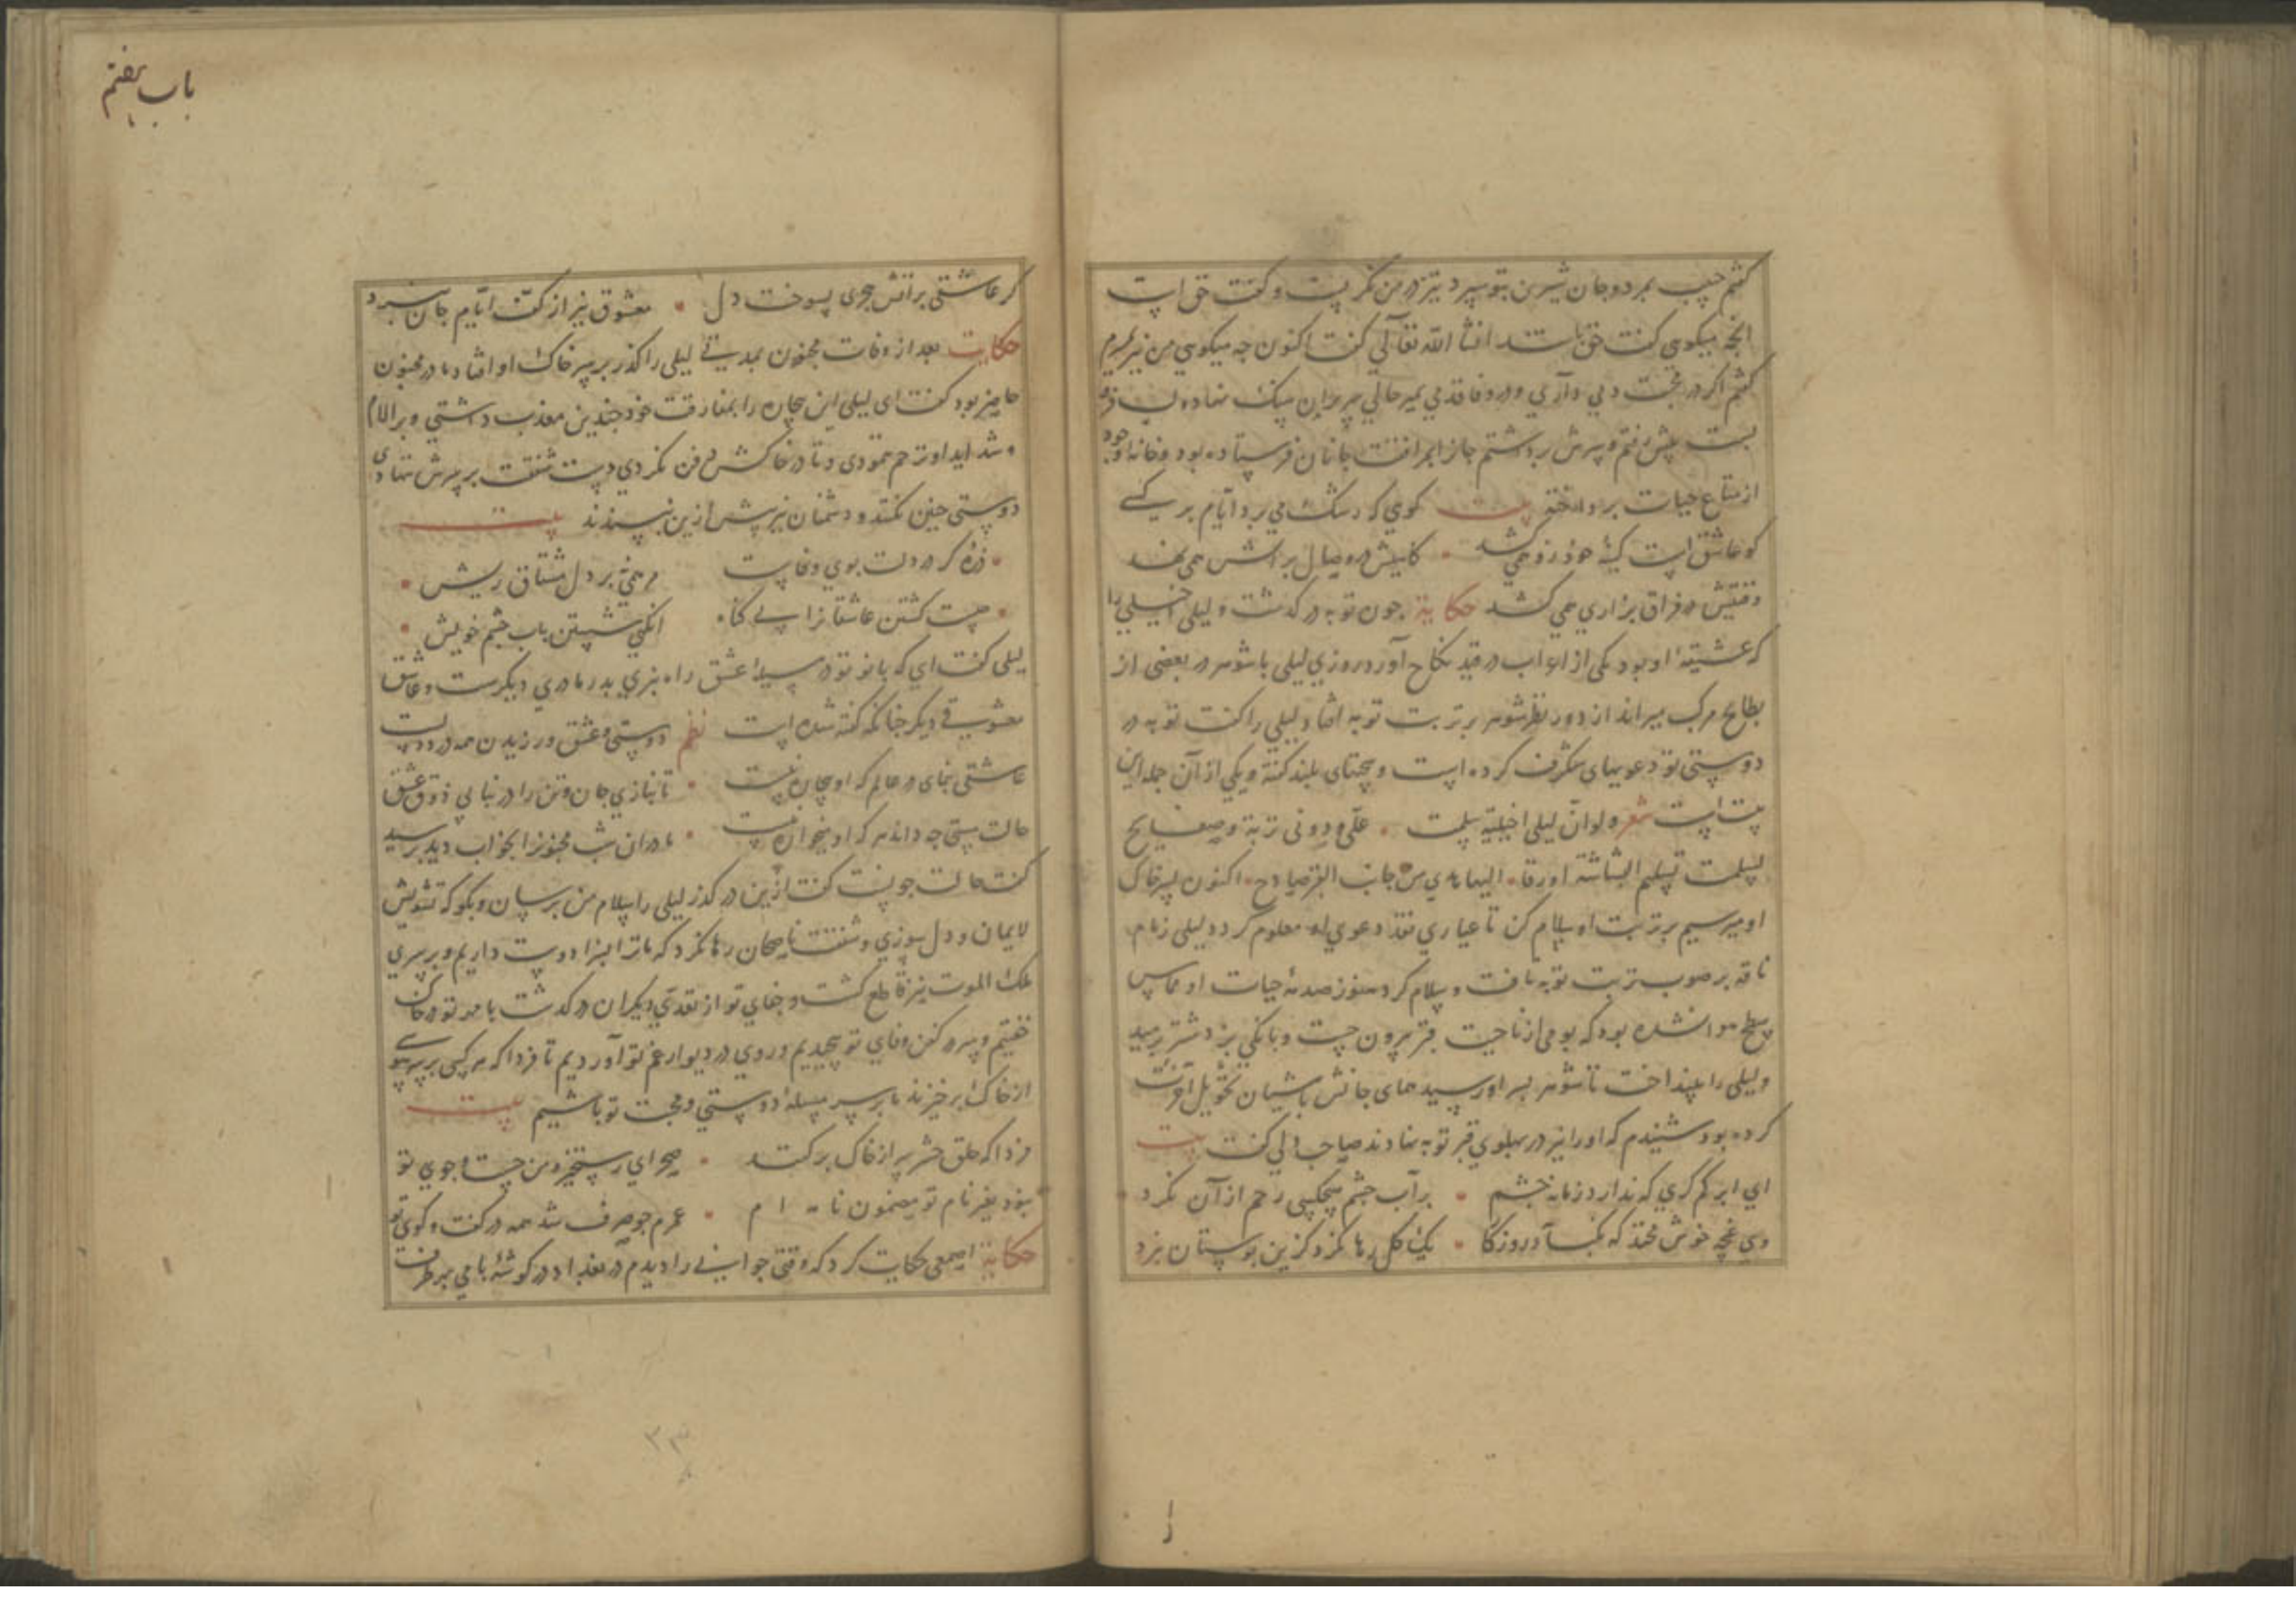 کفتم حبیب بمرد و جان شیرین بتو سپرد تیز در من نکریست و کفت حق است
انجه میکوی کفت حق باشد انشا الله تعالی کفت اکنون جه میکویی من نیز بمیرم
کفتم اکر در محبت دمی داری و در وفا قدمی بمیر حالی سر بران سنک نهاد و لب فرو
بست پیش رفتم و سرش برداشتم جانرا بمرافقت جانان فرستاده بود و خانه وجود
از متاع حیات برداخته بیت کویی که دشک می برد ایام بر کسی
کو عاشق است کینهٔ هذر زو همی کشد • کاهیش در وصال براتش همی نهد
وقتیش در فراق بزاری همی کشد حکایة جون توبه در کذشت و لیلی اخیلی را
که عشیقهٔ او بود یکی از اعراب در قید نکاح آورد روزی لیلی با شوهر در بعضی از
بطایح مرکب میراند از دور نظر شوهر بر تربت توبه افتاد لیلی را کفت توبه در
دوستی تو دعویهای شکرف کرده است و سخنهای بلند کفته و یکی از آن جمله این
بیت است شعر ولو ان لیلی اخیلیة سلمت • علی و دونی تربة و صفایح
لسلمت تسلیم البشاشة اورقا • الیها صدی من جانب القبر صایح • اکنون بسر خاک
او میرسیم بر تربت او سلام کن تا عیاری نقد دعوی او معلوم کردد لیلی زمام
ناقه بر صوب تربت توبه تافت و سلام کرد هنوز صدمهٔ حیات او مماس
سطح هوا نشده بود که بومی از ناحیت قبر بیرون جست و بانکی بزد شتر برمید
و لیلی را بینداخت تا شوهر بسر او رسید همای جانش باشیان تحویل آخرت
کرده بود شنیدم که او را نیز در بهلوی قبر توبه نهادند صاحب دلی کفت بیت
ای ابر کم کری که ندارد زمانه جشم • بر آب جشم هیچکسی رحم از آن نکرد •
وی غنچه خوش مخند که یکباد روزکا • یک کل رها نکرد کزین بوستان نبرد
باب هفتم
کر عاشقی براتش هجری بسوخت دل • معشوق نیز از کف ایام جان نبرد
حکایت بعد از وفات مجنون بمدتی لیلی را کذر بر سر خاک او افتاد مادر مجنون
حاضر بود کفت ای لیلی این بیچاره را بمفارقت خود جندین معذب داشتی و بر الام
و شداید او ترحم ننمودی و تا در خاکش دفن نکردی دست شفقت بر سرش ننهادی
دوستی جنین نکنند و دشمنان نیز بیش ازین نبسندند بیت
• ذرهٔ کر در دلت بوی وفاست مرهمی نه بر دل مشتاق ریش •
• جیست کشتن عاشقانرا بی کناه انکهی شستن باب جشم خویش •
لیلی کفت ای که بانو تو در سیدا عشق راه نبری بدر مادری دیکرست و عاشق
معشوقی دیکر جنانکه کفته شده است نظم دوستی و عشق ورزیدن همه در دوست
عاشقی بنمای در عالم که او بیجاره نیست • تا نبازی جان و تن را در نیابی ذوق عشق
حالت مستی جه داند هر که او میخواره نیست • مادر ان شب مجنونرا بخواب دید برسید
کفت حالت جونست کفت ازین در کذر لیلی را سلام من برسان و بکو که تشویش
لایمان و دل سوزی و شفقت ناصحان رها نکرد که ما ترا بسزا دوست داریم و برسری
ملک الموت نیز قاطع کشت و جفای تو از تعدی دیکران در کذشت با مهر تو در خاک
خفتیم و سر در کفن وفای تو بیجیدیم و روی در دیوار غم تو آوردیم تا فردا که هر کسی بر سر سویی
از خاک برخیزند ما بر سر سلسلهٔ دوستی و محبت تو باشیم بیت
فردا که خلق حشر سر از خاک برکنند • صحرای رستخیز و من جست و جوی تو
نبود بغیر نام تو مضمون نامه ام • عمرم جو صرف شد همه در کفت و کوی تو
حکایة اصمعی حکایت کرد که وقتی جوانی را دیدم در بغداد در کوشهٔ بامی بر طرف
۳۳